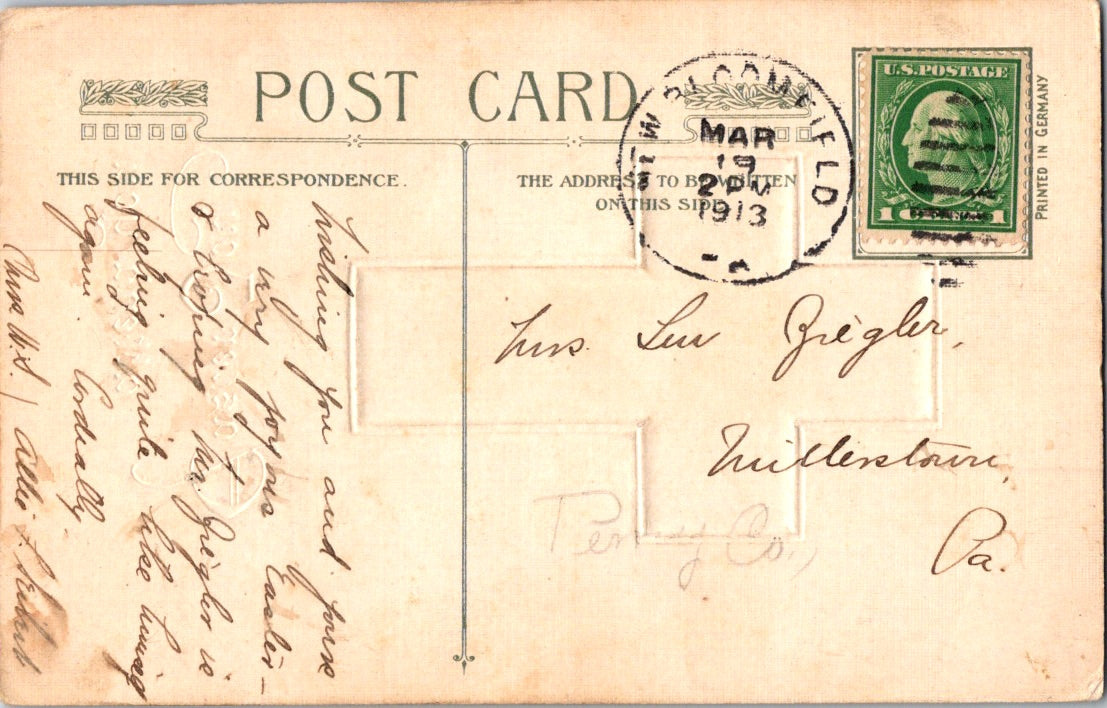 POST CARD
THIS SIDE FOR CORRESPONDENCE.
THE ADDRESS TO BE WRITTEN
ON THIS SIDE
NEW BLOOMFIELD
MAR
19
2 PM
1913
PA
U.S. POSTAGE
1 1
PRINTED IN GERMANY
Wishing you and yours
a very joyous Easter–
& hoping Mr. Ziegler is
feeling quite like himself
again Cordially
Mrs. W. S.
Mrs. Ziegler,
Millerstown,
Pa.
Perry Co.,